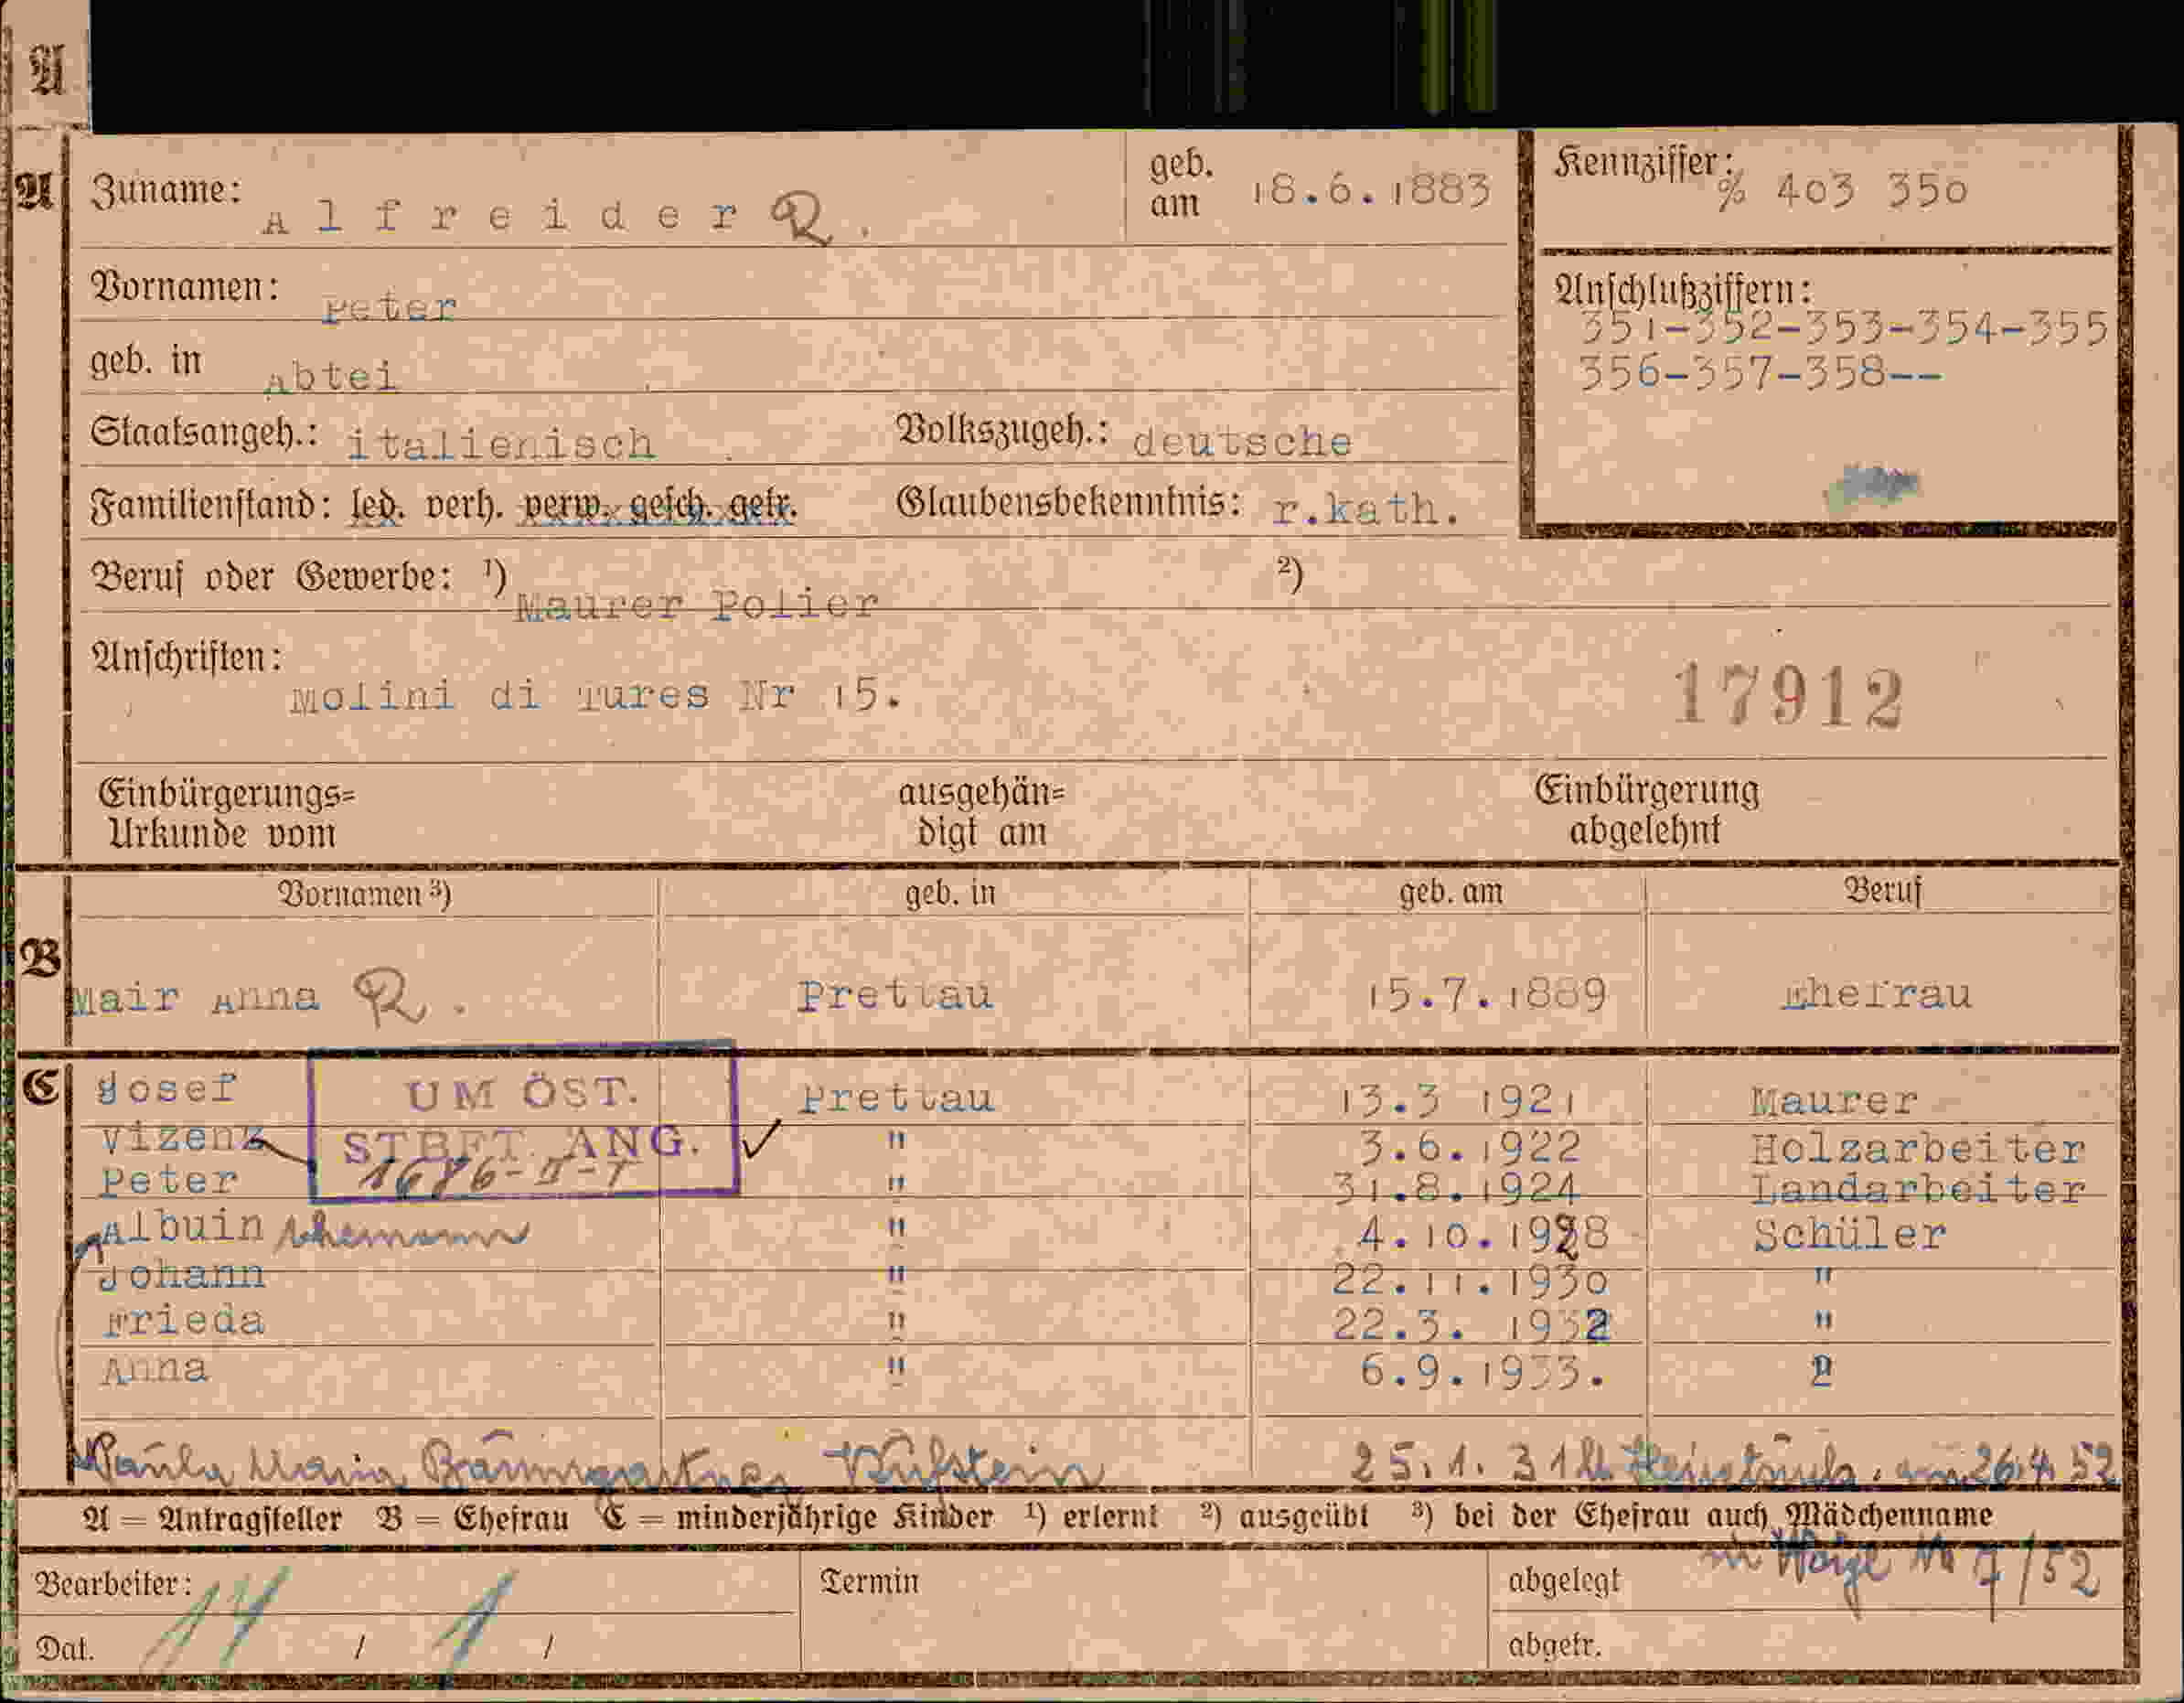 A
A
Zuname: Alfreider R.
geb. am 18.6.1883
Kennziffer: % 403 350
Vornamen: Peter
Anschlußziffern:
351-352-353-354-355
356-357-358--
geb. in Abtei
Staatsangeh.: italienisch Volkszugeh.: deutsche
Familienstand: led. verh. verw. gesch. getr. Glaubensbekenntnis: r.kath.
Beruf oder Gewerbe: ¹) Maurer Polier ²)
Anschriften:
Molini di Tures Nr 15.
17912
Einbürgerungs= Urkunde vom
ausgehän= digt am
Einbürgerung abgelehnt
B
Vornamen ³) geb. in geb. am Beruf
Mair Anna R. Prettau 15.7.1889 Ehefrau
C
Josef Prettau 13.3 1921 Maurer
Vizenz " 3.6.1922 Holzarbeiter
Peter " 31.8.1924 Landarbeiter
UM ÖST.
STBFT. ANG.
1686-II-I
Albuin Ehemann " 4.10.1928 Schüler
Johann " 22.11.1930 "
Frieda " 22.3. 1932 "
Anna " 6.9.1933. "
Paula Maria Baumgartner Kufstein 25.1.31 am 26.4.52
A = Antragsteller B = Ehefrau C = minderjährige Kinder ¹) erlernt ²) ausgeübt ³) bei der Ehefrau auch Mädchenname
in No 7/52
Bearbeiter: Termin abgelegt
Dat. / / abgetr.